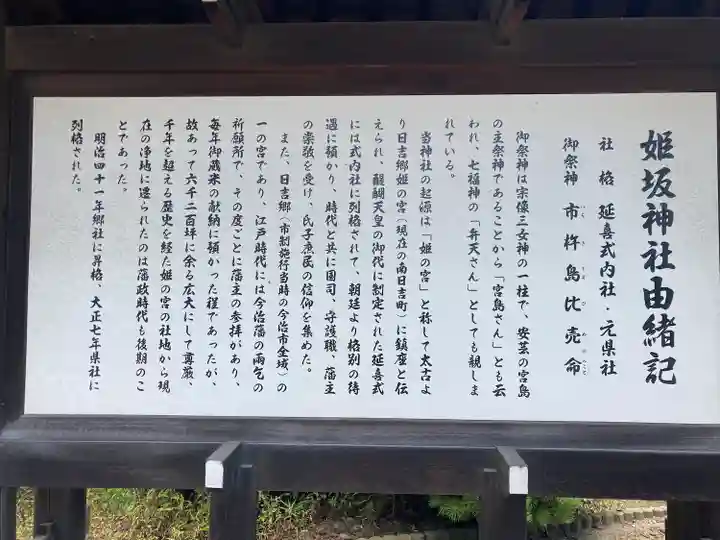 姫坂神社由緒記
社格 延喜式内社・元県社
御祭神 市杵島比売命
いつきしまひめのみこと
御祭神は宗像三女神の一柱で、安芸の宮島
の主祭神であることから「宮島さん」とも云
われ、七福神の「弁天さん」としても親しま
れている。
当神社の起源は「姫の宮」と称して太古よ
り日吉郷姫の宮(現在の南日吉町)に鎮座と伝
えられ、醍醐天皇の御代に制定された延喜式
には式内社に列格されて、朝廷より格別の待
遇に預かり、時代と共に国司、守護職、藩主
の崇敬を受け、氏子庶民の信仰を集めた。
また、日吉郷(市制施行当時の今治市全域)の
一の宮であり、江戸時代には今治藩の雨乞の
祈願所で、その度ごとに藩主の参拝があり、
毎年御蔵米の献納に預かった程であったが、
故あって六千二百坪に余る広大にして尊厳、
千年を超える歴史を経た姫の宮の社地から現
在の浄地に遷られたのは藩政時代も後期のこ
とであった。
明治四十一年郷社に昇格、大正七年県社に
列格された。